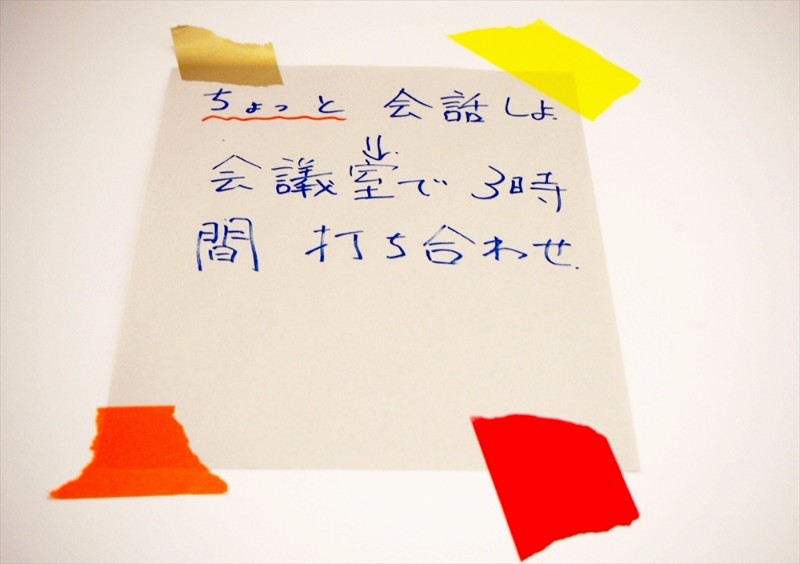 ちょっと 会話しよ.
⇓
会議室で 3時
間 打ち合わせ.